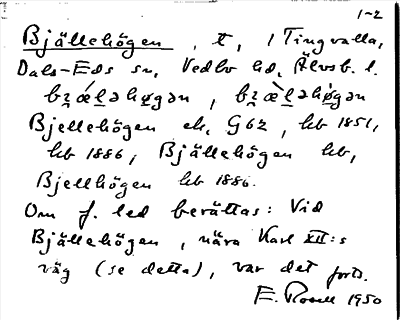 1-2
Bjällehögen, t, i Tingvalla,
Dals-Eds sn, Vedbo hd, Älvsb. l.
Bjellehögen ek. G62, hb 1851,
hb 1886, Bjällehögen hb,
Bjellhögen hb 1886.
Om f. led berättas: Vid
Bjällehögen, nära Karl XII:s
väg (se detta), var det forts.
E. Rosell 1950